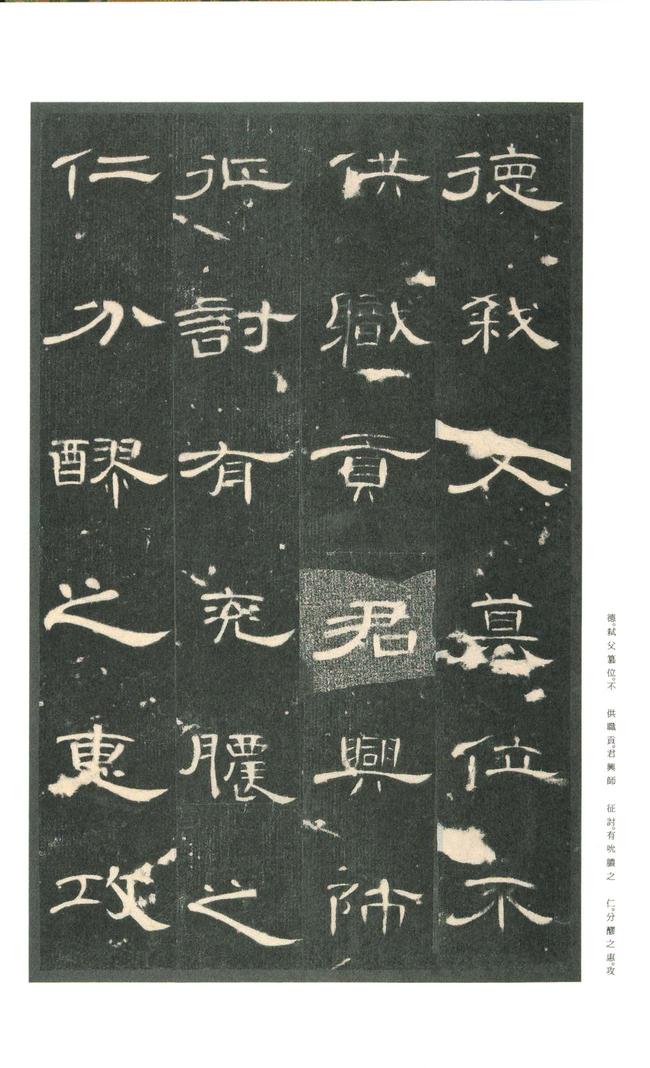 德弑父篡位不
供職貢君興師
征討有兖膿之
仁分醪之惠攻
德。弑父篡位。不　供職貢。君興師　征討。有吮膿之　仁。分醪之惠。攻